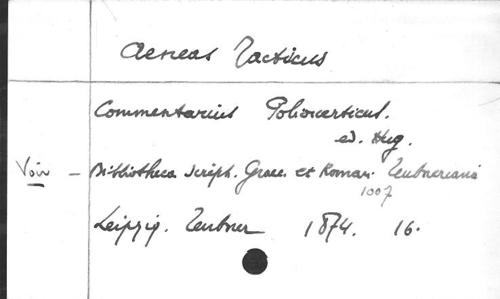 Aeneas Tacticus
Commentarius Poliorcerticus.
ed. Hug.
Voir - Bibliotheca script. Graec. et Roman. Teubneriana
1007
Leipzig. Teubner 1874. 16.